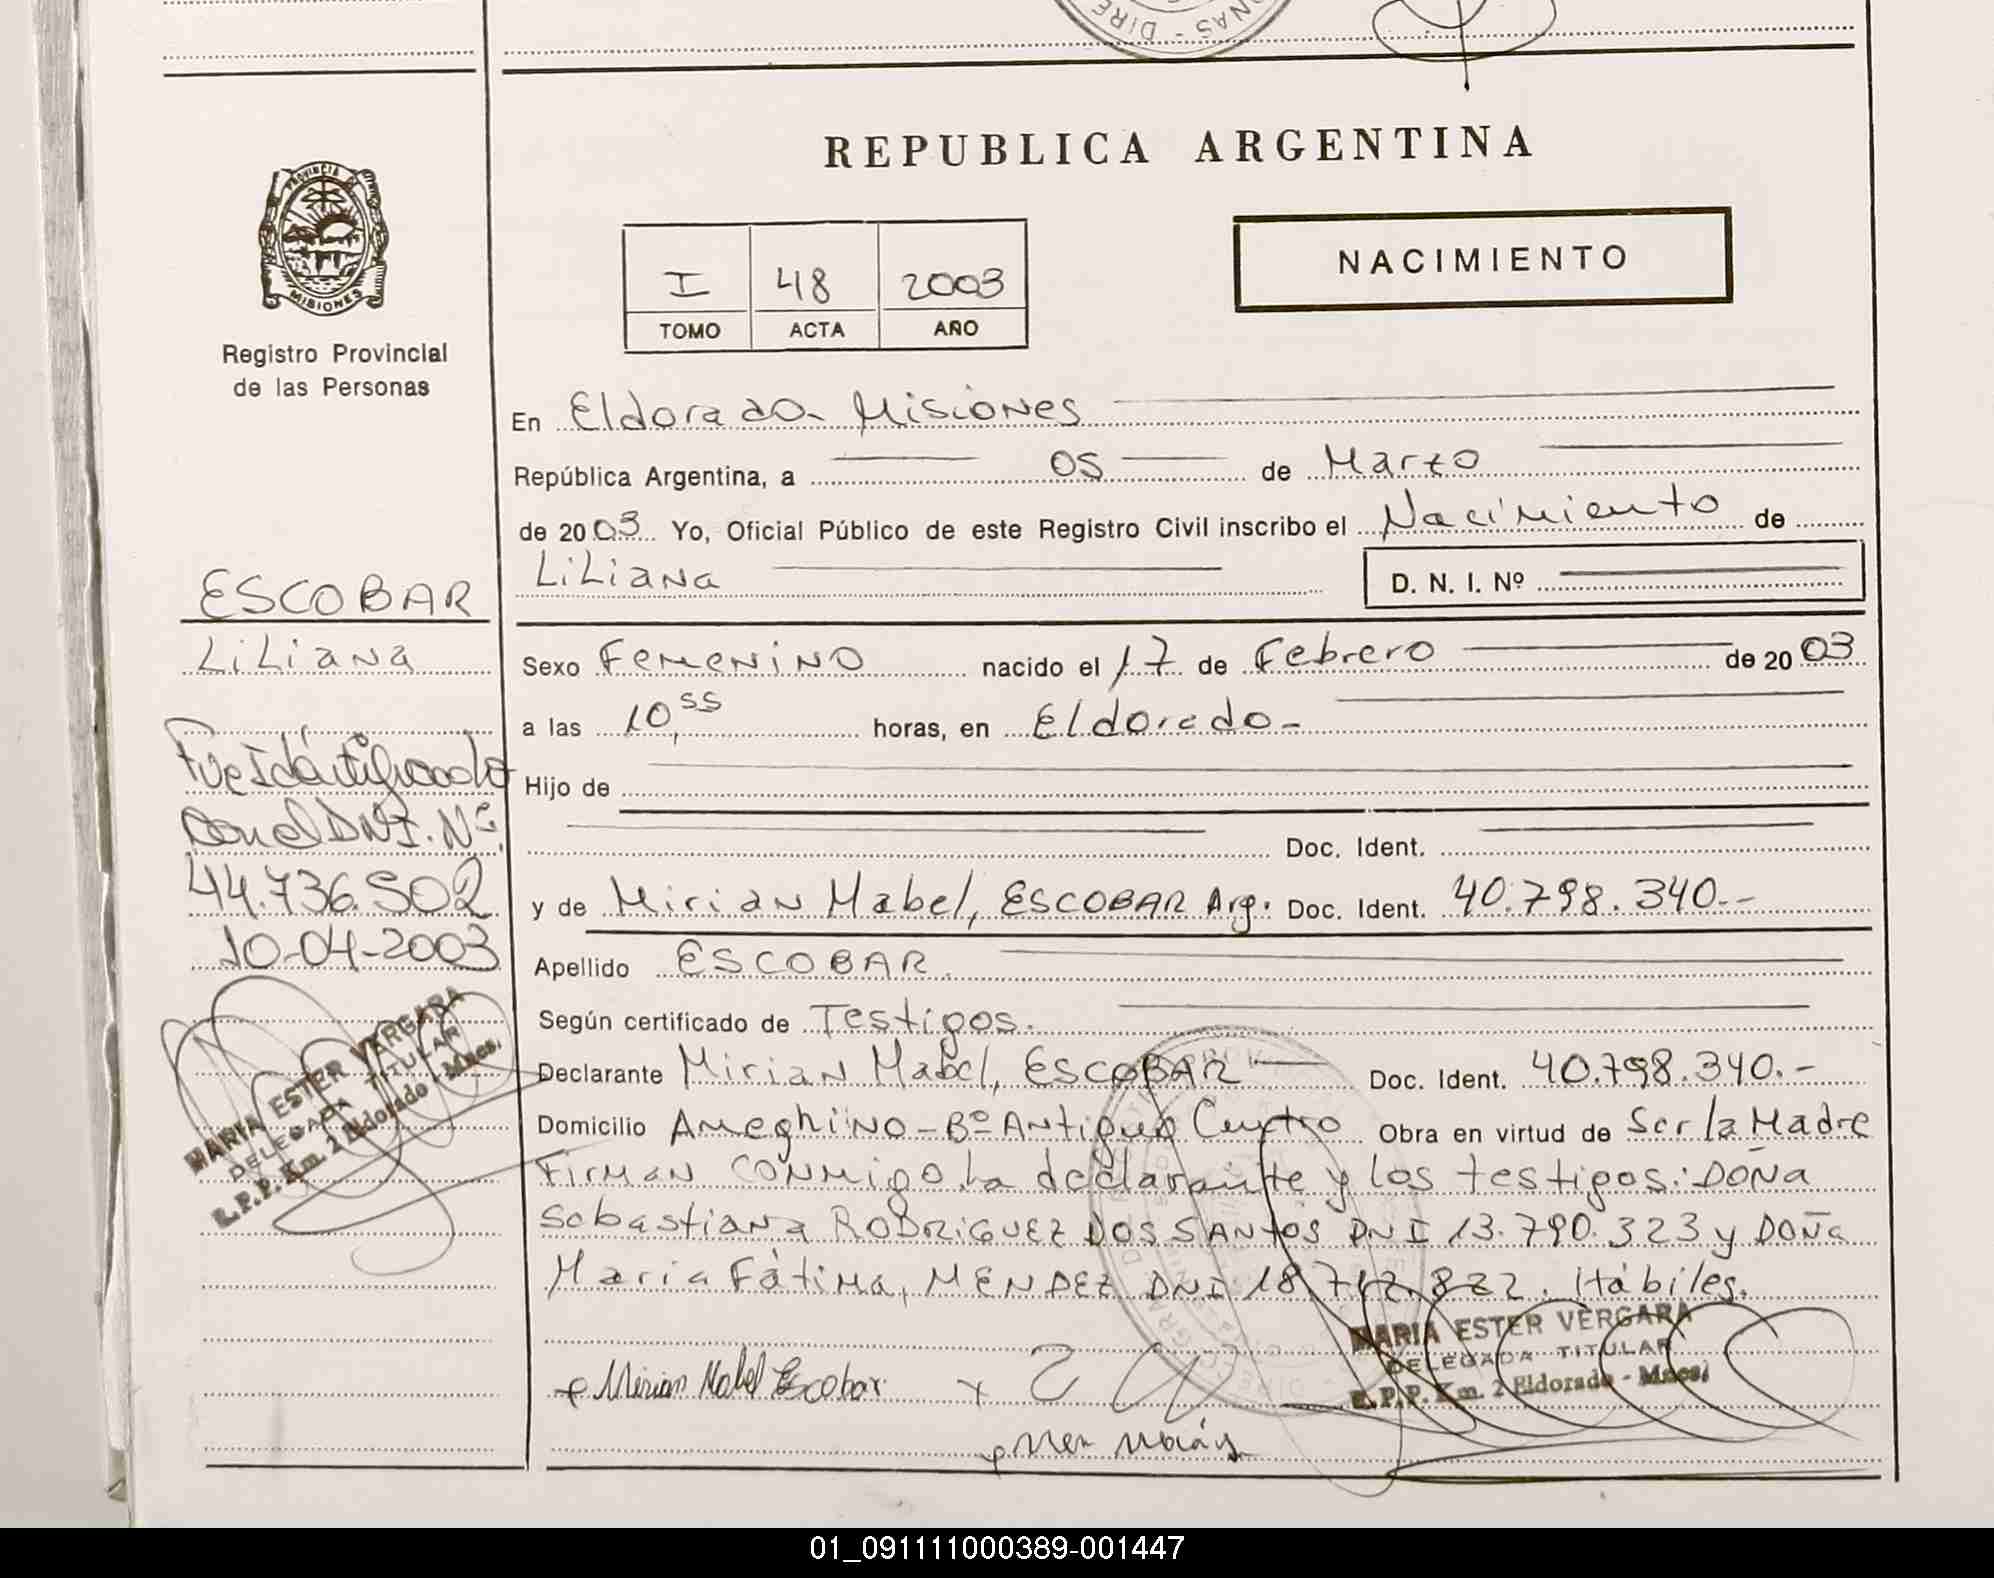 REPUBLICA ARGENTINA
PROVINCIA DE
MISIONES
Registro Provincial
de las Personas
I 48 2003
TOMO ACTA AÑO
NACIMIENTO
En Eldorado- Misiones
República Argentina, a 05 de Marzo
de 2003 Yo, Oficial Público de este Registro Civil inscribo el Nacimiento de
Liliana D. N. I. Nº
ESCOBAR
Liliana
Sexo Femenino nacido el 17 de Febrero de 2003
a las 10,55 horas, en Eldorado-
Hijo de
Doc. Ident.
y de Mirian Mabel, ESCOBAR Arg. Doc. Ident. 40.798.340.--
Apellido ESCOBAR.
Según certificado de Testigos.
Declarante Mirian Mabel, ESCOBAR Doc. Ident. 40.798.340.-
Domicilio Ameghino-Bº Antiguo Centro Obra en virtud de Ser la Madre
Firman conmigo la declarante y los testigos: DOÑA
Sebastiana RODRIGUEZ DOS SANTOS DNI 13.790.323 y DOÑA
Maria Fátima, MENDEZ DNI 18.712.822. Hábiles.
Fue Idántificado
Con el DNI. Nº
44.736.502
10-04-2003
MARIA ESTER VERGARA
DELEGADA TITULAR
R.P.P. Km. 2 Eldorado - Mnes.
Mirian Mabel Escobar
MARIA ESTER VERGARA
DELEGADA TITULAR
R.P.P. Km. 2 Eldorado - Mnes.
01_091111000389-001447